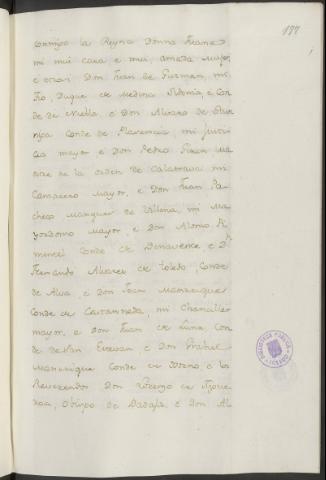 177
conmigo la Reyna Donna Juana
mi mui cara e mui amada Muger,
e otrosi Don Juan de Guzman, mi
tio, Duque de Medina Sidonia, e Con
de de Niebla, e Don Alvaro de Stun
niga Conde de Plasencia, mi justi
cia mayor e Don Pedro Giron Ma
estre de la orden de Calatrava mi
Camarero Mayor, e Don Juan Pa
checo Marques de Villena, mi Ma
yordomo mayor, e Don Alonso Pi
mentel Conde de Benavente e D.
Fernando Alvarez de Toledo, Conde
de Alva, e Don Juan Manrrique
Conde de Castanneda, mi Chanciller
mayor, e Don Juan de Luna Con
de de San Estevan e Don Grabiel
Manrrique Conde de Osorno, e los
Reverendos Don Lorenzo de Figue
roa, Obispo de Badajoz e Don Al